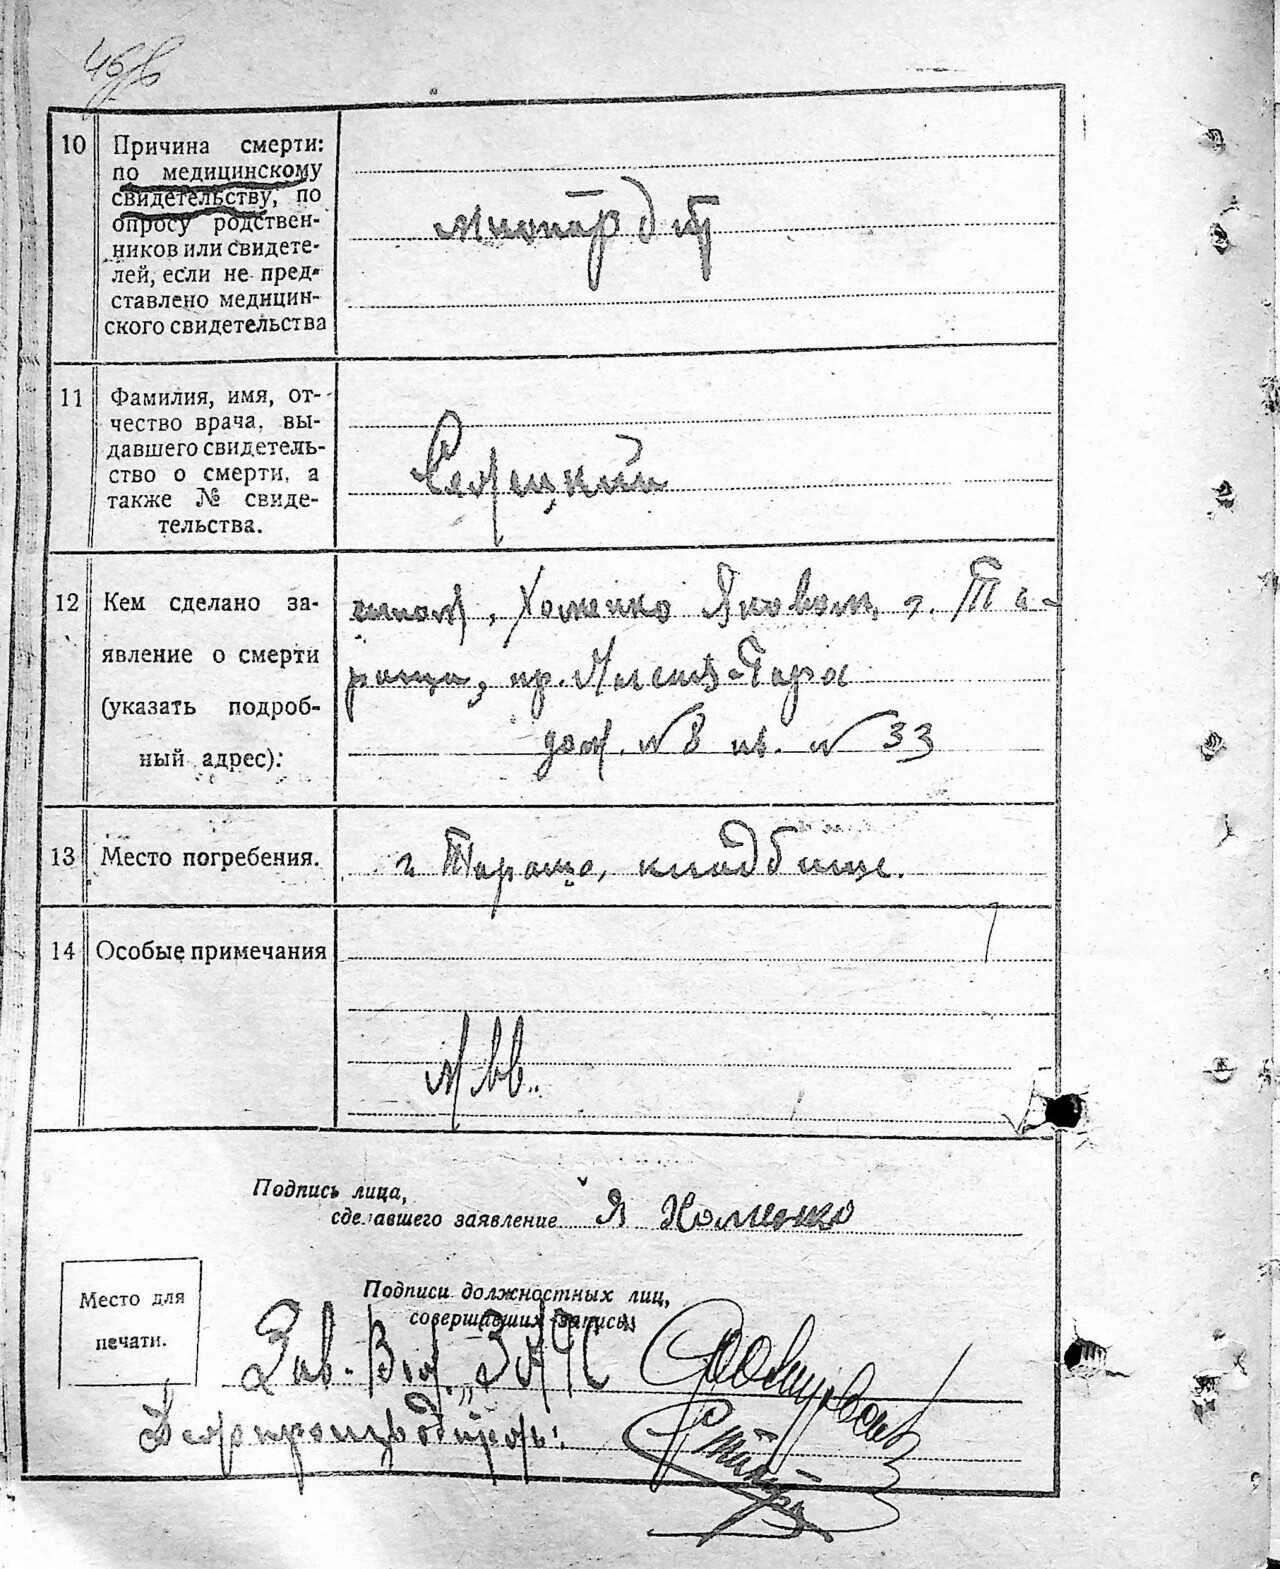 10 Причина смерти:
по медицинскому
свидетельству, по
опросу родствен-
ников или свидете-
лей, если не пред-
ставлено медицин-
ского свидетельства
миокардит
11 Фамилия, имя, от-
чество врача, вы-
давшего свидетель-
ство о смерти, а
также № свиде-
тельства.
12 Кем сделано за-
явление о смерти
(указать подроб-
ный адрес):
Хоменко Яковом, г. Та-
ращи,
дом. № 8 кв. № 33
13 Место погребения.
г. Тараща, кладбище.
14 Особые примечания
Подпись лица,
сделавшего заявление Я Хоменко
Место для
печати.
Подписи должностных лиц,
совершивших запись:
Зав. ЗАГС
Делопроизводитель: